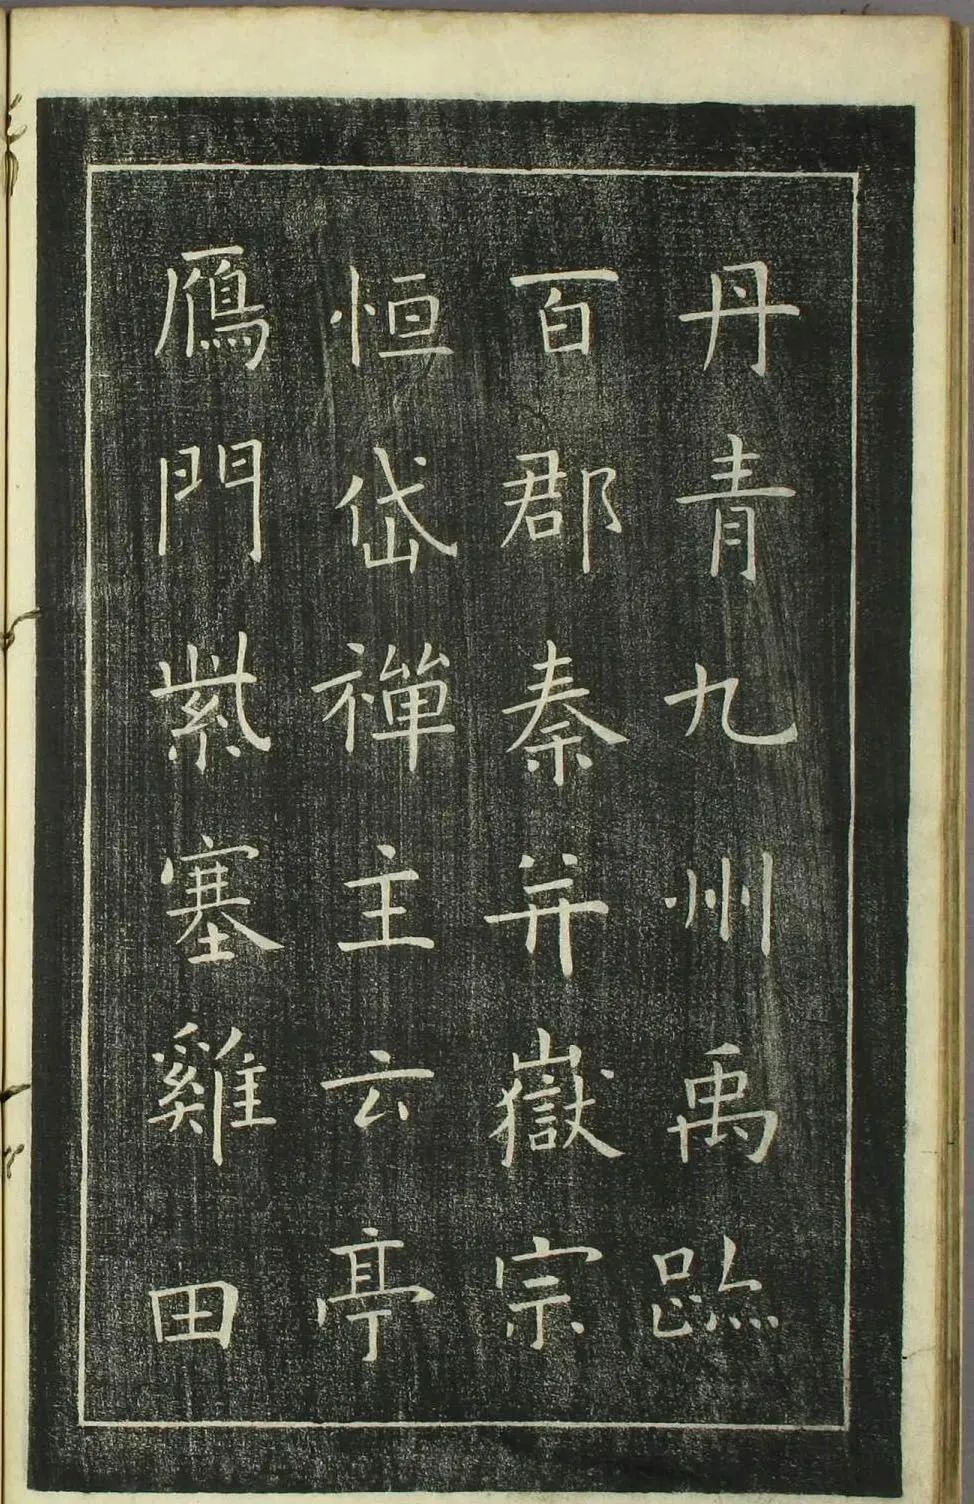 丹青九州禹跡
百郡秦并嶽宗
恒岱禪主云亭
鴈門紫塞雞田